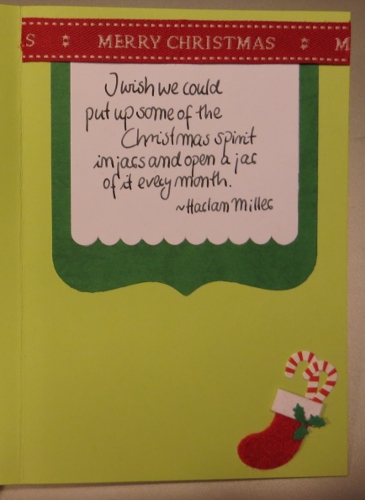 S MERRY CHRISTMAS M
I wish we could
put up some of the
Christmas spirit
in jars and open a jar
of it every month.
~Harlan Miller